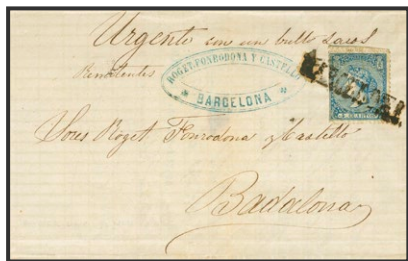 Urgente con un bulto sacos
Remitentes
ROGET, FONRODONA Y CASTELL
* BARCELONA *
Sres Roget Fonrodona y Castello
Badalona